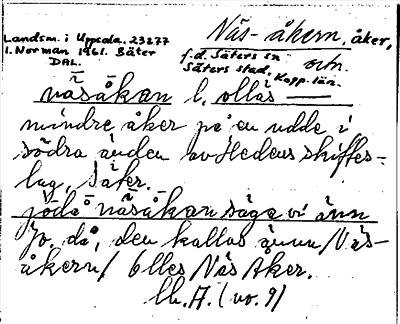 Landsm. i Uppsala. 23277
Näs-åkern, åker,
I. Norman 1961. Säter
f.d. Säters sn och
DAL.
Säters stad, Kopp. län.
näsåkan l. ollas
mindre åker på en udde i
södra änden av Hedens skiftes-
lag, Säter.
jōda näsåkan säga vi änn
Jo, då, den kallas ännu / Näs-
åkern / Olles Näs Åker.
lh. A. (no. 9)